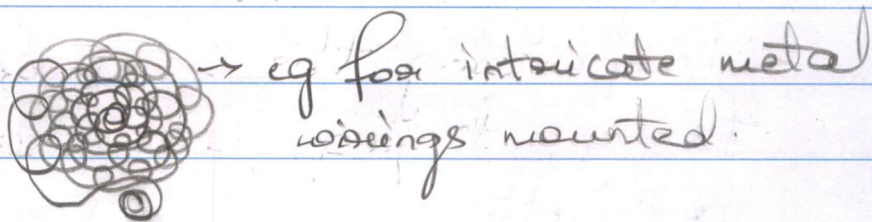 → eg for intricate metal
wirings mounted.